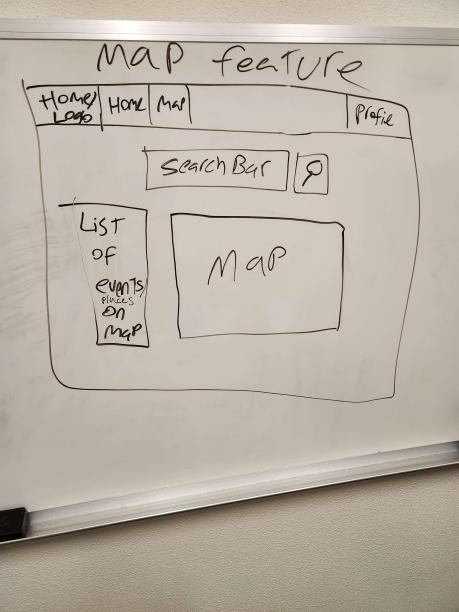 Map feature
Home/
Logo
Home
Map
Profile
Search Bar
List
of
events/
places
on
map
Map